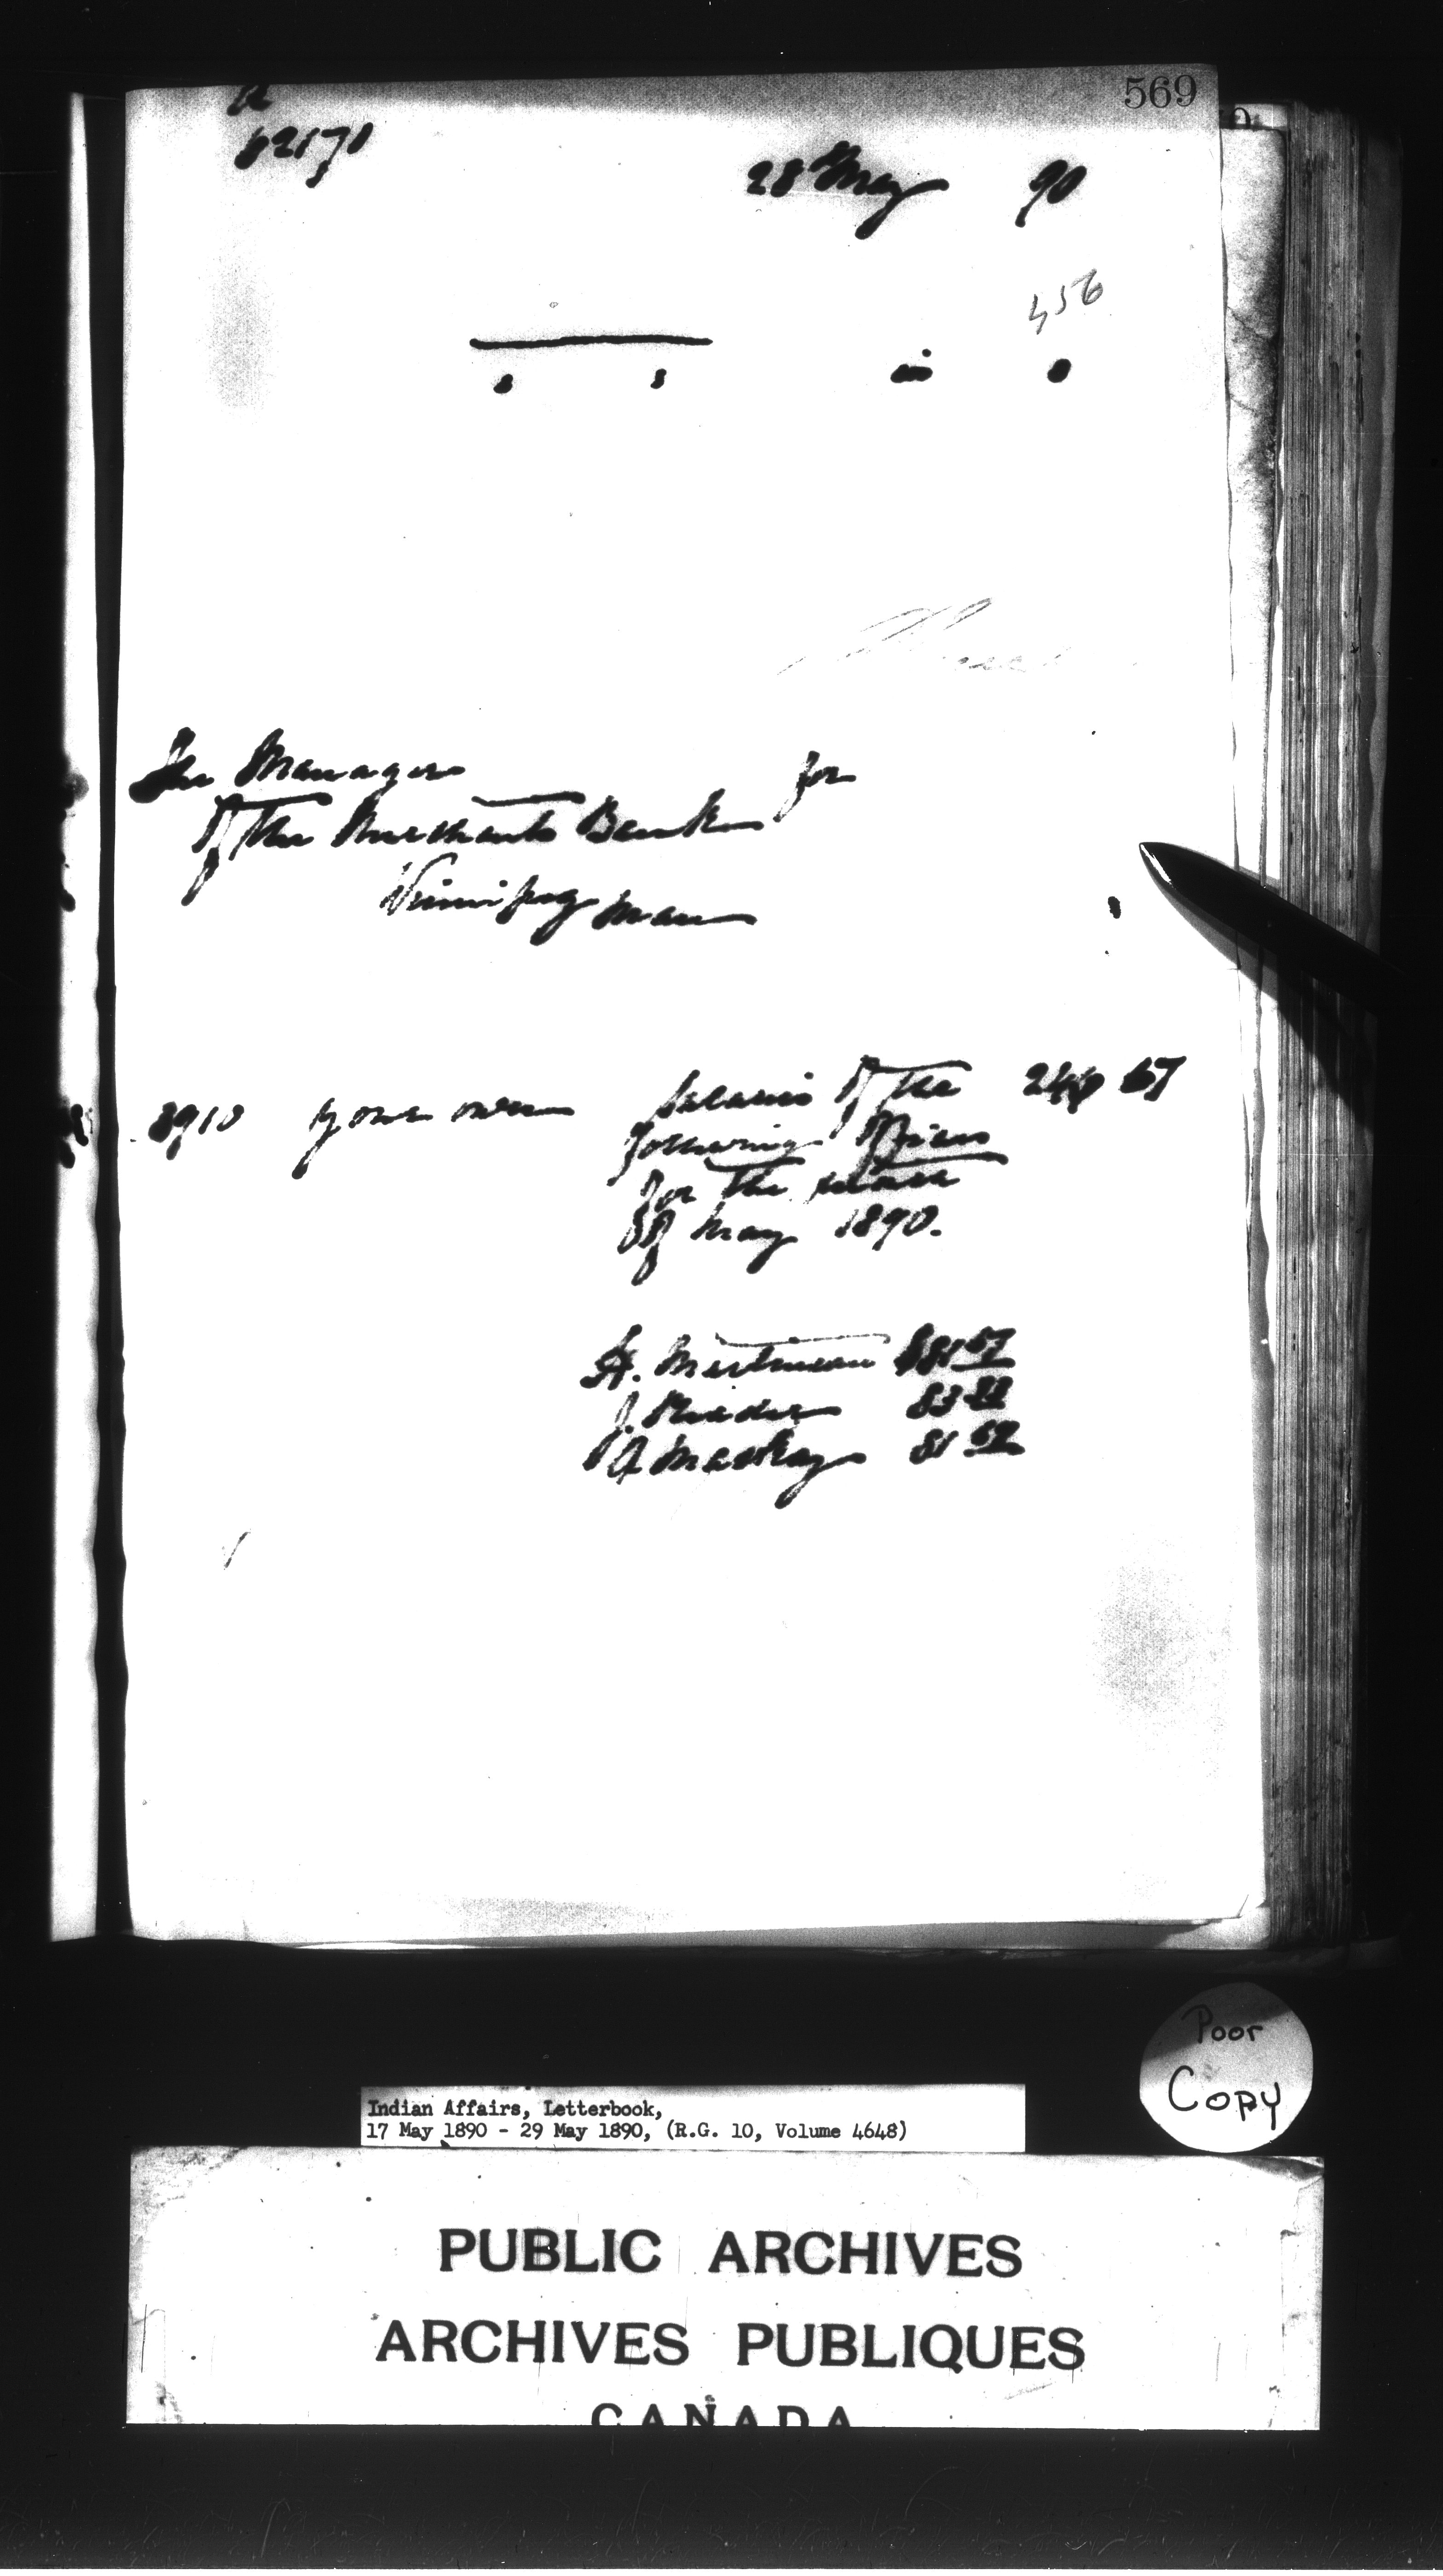 569
62171
28 May 90
456
The Manager
of the Merchants Bank for
Winnipeg Man
8910 your own Salaries of the 244 67
following Officers
for the
of May 1890.
H. Martineau
J.
A Mackay
Poor
Copy
Indian Affairs, Letterbook,
17 May 1890 - 29 May 1890, (R.G. 10, Volume 4648)
PUBLIC ARCHIVES
ARCHIVES PUBLIQUES
CANADA